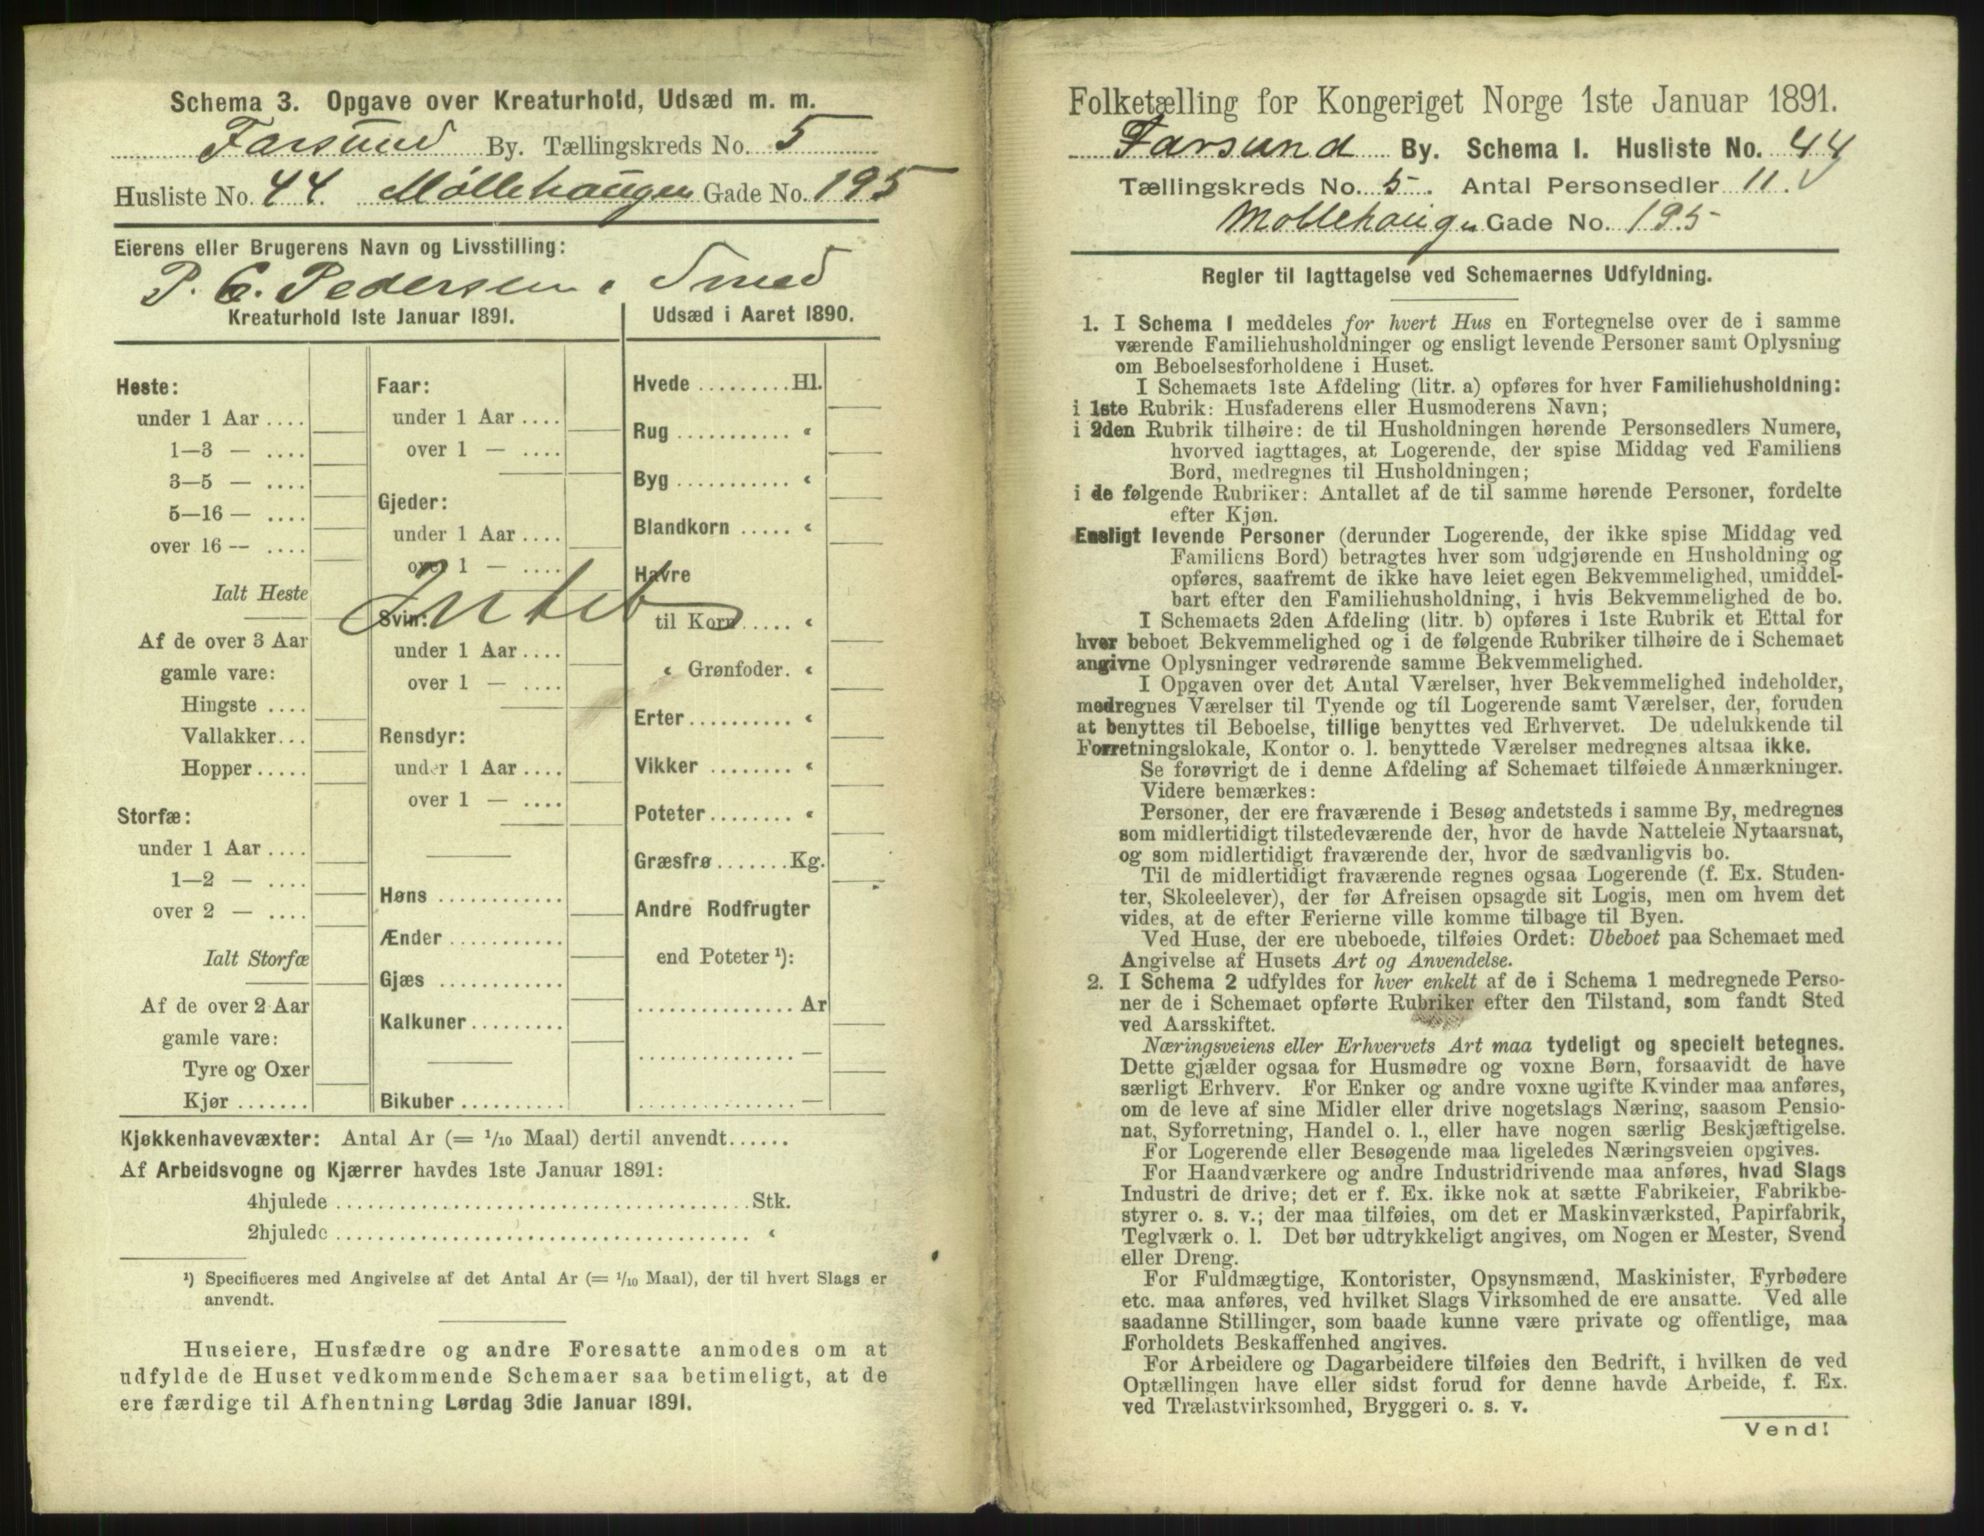 Schema 3. Opgave over Kreaturhold, Udsæd m. m.
Farsund By. Tællingskreds No. 5
Husliste No. 44. Møllehaugen Gade No. 195
Eierens eller Brugerens Navn og Livsstilling:
P. C. Pedersen, Smed
Kreaturhold 1ste Januar 1891.
Heste:
under 1 Aar ....
1—3 — ....
3—5 — ....
5—16 — ....
over 16 — ....
Ialt Heste
Af de over 3 Aar
gamle vare:
Hingste ....
Vallakker...
Hopper.....
Storfæ:
under 1 Aar ....
1—2 — ....
over 2 — ....
Ialt Storfæ
Af de over 2 Aar
gamle vare:
Tyre og Oxer
Kjør .......
Faar:
under 1 Aar ....
over 1 — ....
Gjeder:
under 1 Aar ....
over 1 — ....
Intet
Svin:
under 1 Aar ....
over 1 — ....
Rensdyr:
under 1 Aar ....
over 1 — ....
Høns ............
Ænder ...........
Gjæs ............
Kalkuner .........
Bikuber ..........
Udsæd i Aaret 1890.
Hvede .........Hl.
Rug ........... "
Byg ........... "
Blandkorn ..... "
Havre
til Korn ..... "
" Grønfoder. "
Erter.......... "
Vikker ........ "
Poteter ........ "
Græsfrø .......Kg.
Andre Rodfrugter
end Poteter ¹):
.............. Ar
.............. —
.............. —
Kjøkkenhavevæxter: Antal Ar (= 1/10 Maal) dertil anvendt......
Af Arbeidsvogne og Kjærrer havdes 1ste Januar 1891:
4hjulede ....................................Stk.
2hjulede .................................... "
¹) Specificeres med Angivelse af det Antal Ar (= 1/10 Maal), der til hvert Slags er
anvendt.
Huseiere, Husfædre og andre Foresatte anmodes om at
udfylde de Huset vedkommende Schemaer saa betimeligt, at de
ere færdige til Afhentning Lørdag 3die Januar 1891.
Folketælling for Kongeriget Norge 1ste Januar 1891.
Farsund By. Schema 1. Husliste No. 44
Tællingskreds No. 5. Antal Personsedler 11.
Møllehaugen Gade No. 195
Regler til Iagttagelse ved Schemaernes Udfyldning.
1. I Schema 1 meddeles for hvert Hus en Fortegnelse over de i samme
værende Familiehusholdninger og ensligt levende Personer samt Oplysning
om Beboelsesforholdene i Huset.
I Schemaets 1ste Afdeling (litr. a) opføres for hver Familiehusholdning:
i 1ste Rubrik: Husfaderens eller Husmoderens Navn;
i 2den Rubrik tilhøire: de til Husholdningen hørende Personsedlers Numere,
hvorved iagttages, at Logerende, der spise Middag ved Familiens
Bord, medregnes til Husholdningen;
i de følgende Rubriker: Antallet af de til samme hørende Personer, fordelte
efter Kjøn.
Ensligt levende Personer (derunder Logerende, der ikke spise Middag ved
Familiens Bord) betragtes hver som udgjørende en Husholdning og
opføres, saafremt de ikke have leiet egen Bekvemmelighed, umiddel-
bart efter den Familiehusholdning, i hvis Bekvemmelighed de bo.
I Schemaets 2den Afdeling (litr. b) opføres i 1ste Rubrik et Ettal for
hver beboet Bekvemmelighed og i de følgende Rubriker tilhøire de i Schemaet
angivne Oplysninger vedrørende samme Bekvemmelighed.
I Opgaven over det Antal Værelser, hver Bekvemmelighed indeholder,
medregnes Værelser til Tyende og til Logerende samt Værelser, der, foruden
at benyttes til Beboelse, tillige benyttes ved Erhvervet. De udelukkende til
Forretningslokale, Kontor o. l. benyttede Værelser medregnes altsaa ikke.
Se forøvrigt de i denne Afdeling af Schemaet tilføiede Anmærkninger.
Videre bemærkes:
Personer, der ere fraværende i Besøg andetsteds i samme By, medregnes
som midlertidigt tilstedeværende der, hvor de havde Natteleie Nytaarsnat,
og som midlertidigt fraværende der, hvor de sædvanligvis bo.
Til de midlertidigt fraværende regnes ogsaa Logerende (f. Ex. Studen-
ter, Skoleelever), der før Afreisen opsagde sit Logis, men om hvem det
vides, at de efter Ferierne ville komme tilbage til Byen.
Ved Huse, der ere ubeboede, tilføies Ordet: Ubeboet paa Schemaet med
Angivelse af Husets Art og Anvendelse.
2. I Schema 2 udfyldes for hver enkelt af de i Schema 1 medregnede Perso-
ner de i Schemaet opførte Rubriker efter den Tilstand, som fandt Sted
ved Aarsskiftet.
Næringsveiens eller Erhvervets Art maa tydeligt og specielt betegnes.
Dette gjælder ogsaa for Husmødre og voxne Børn, forsaavidt de have
særligt Erhverv. For Enker og andre voxne ugifte Kvinder maa anføres,
om de leve af sine Midler eller drive nogetslags Næring, saasom Pensio-
nat, Syforretning, Handel o. l., eller have nogen særlig Beskjæftigelse.
For Logerende eller Besøgende maa ligeledes Næringsveien opgives.
For Haandværkere og andre Industridrivende maa anføres, hvad Slags
Industri de drive; det er f. Ex. ikke nok at sætte Fabrikeier, Fabrikbe-
styrer o. s. v.; der maa tilføies, om det er Maskinværksted, Papirfabrik,
Teglværk o. l. Det bør udtrykkeligt angives, om Nogen er Mester, Svend
eller Dreng.
For Fuldmægtige, Kontorister, Opsynsmænd, Maskinister, Fyrbødere
etc. maa anføres, ved hvilket Slags Virksomhed de ere ansatte. Ved alle
saadanne Stillinger, som baade kunne være private og offentlige, maa
Forholdets Beskaffenhed angives.
For Arbeidere og Dagarbeidere tilføies den Bedrift, i hvilken de ved
Optællingen have eller sidst forud for denne havde Arbeide, f. Ex.
ved Trælastvirksomhed, Bryggeri o. s. v.
Vend!